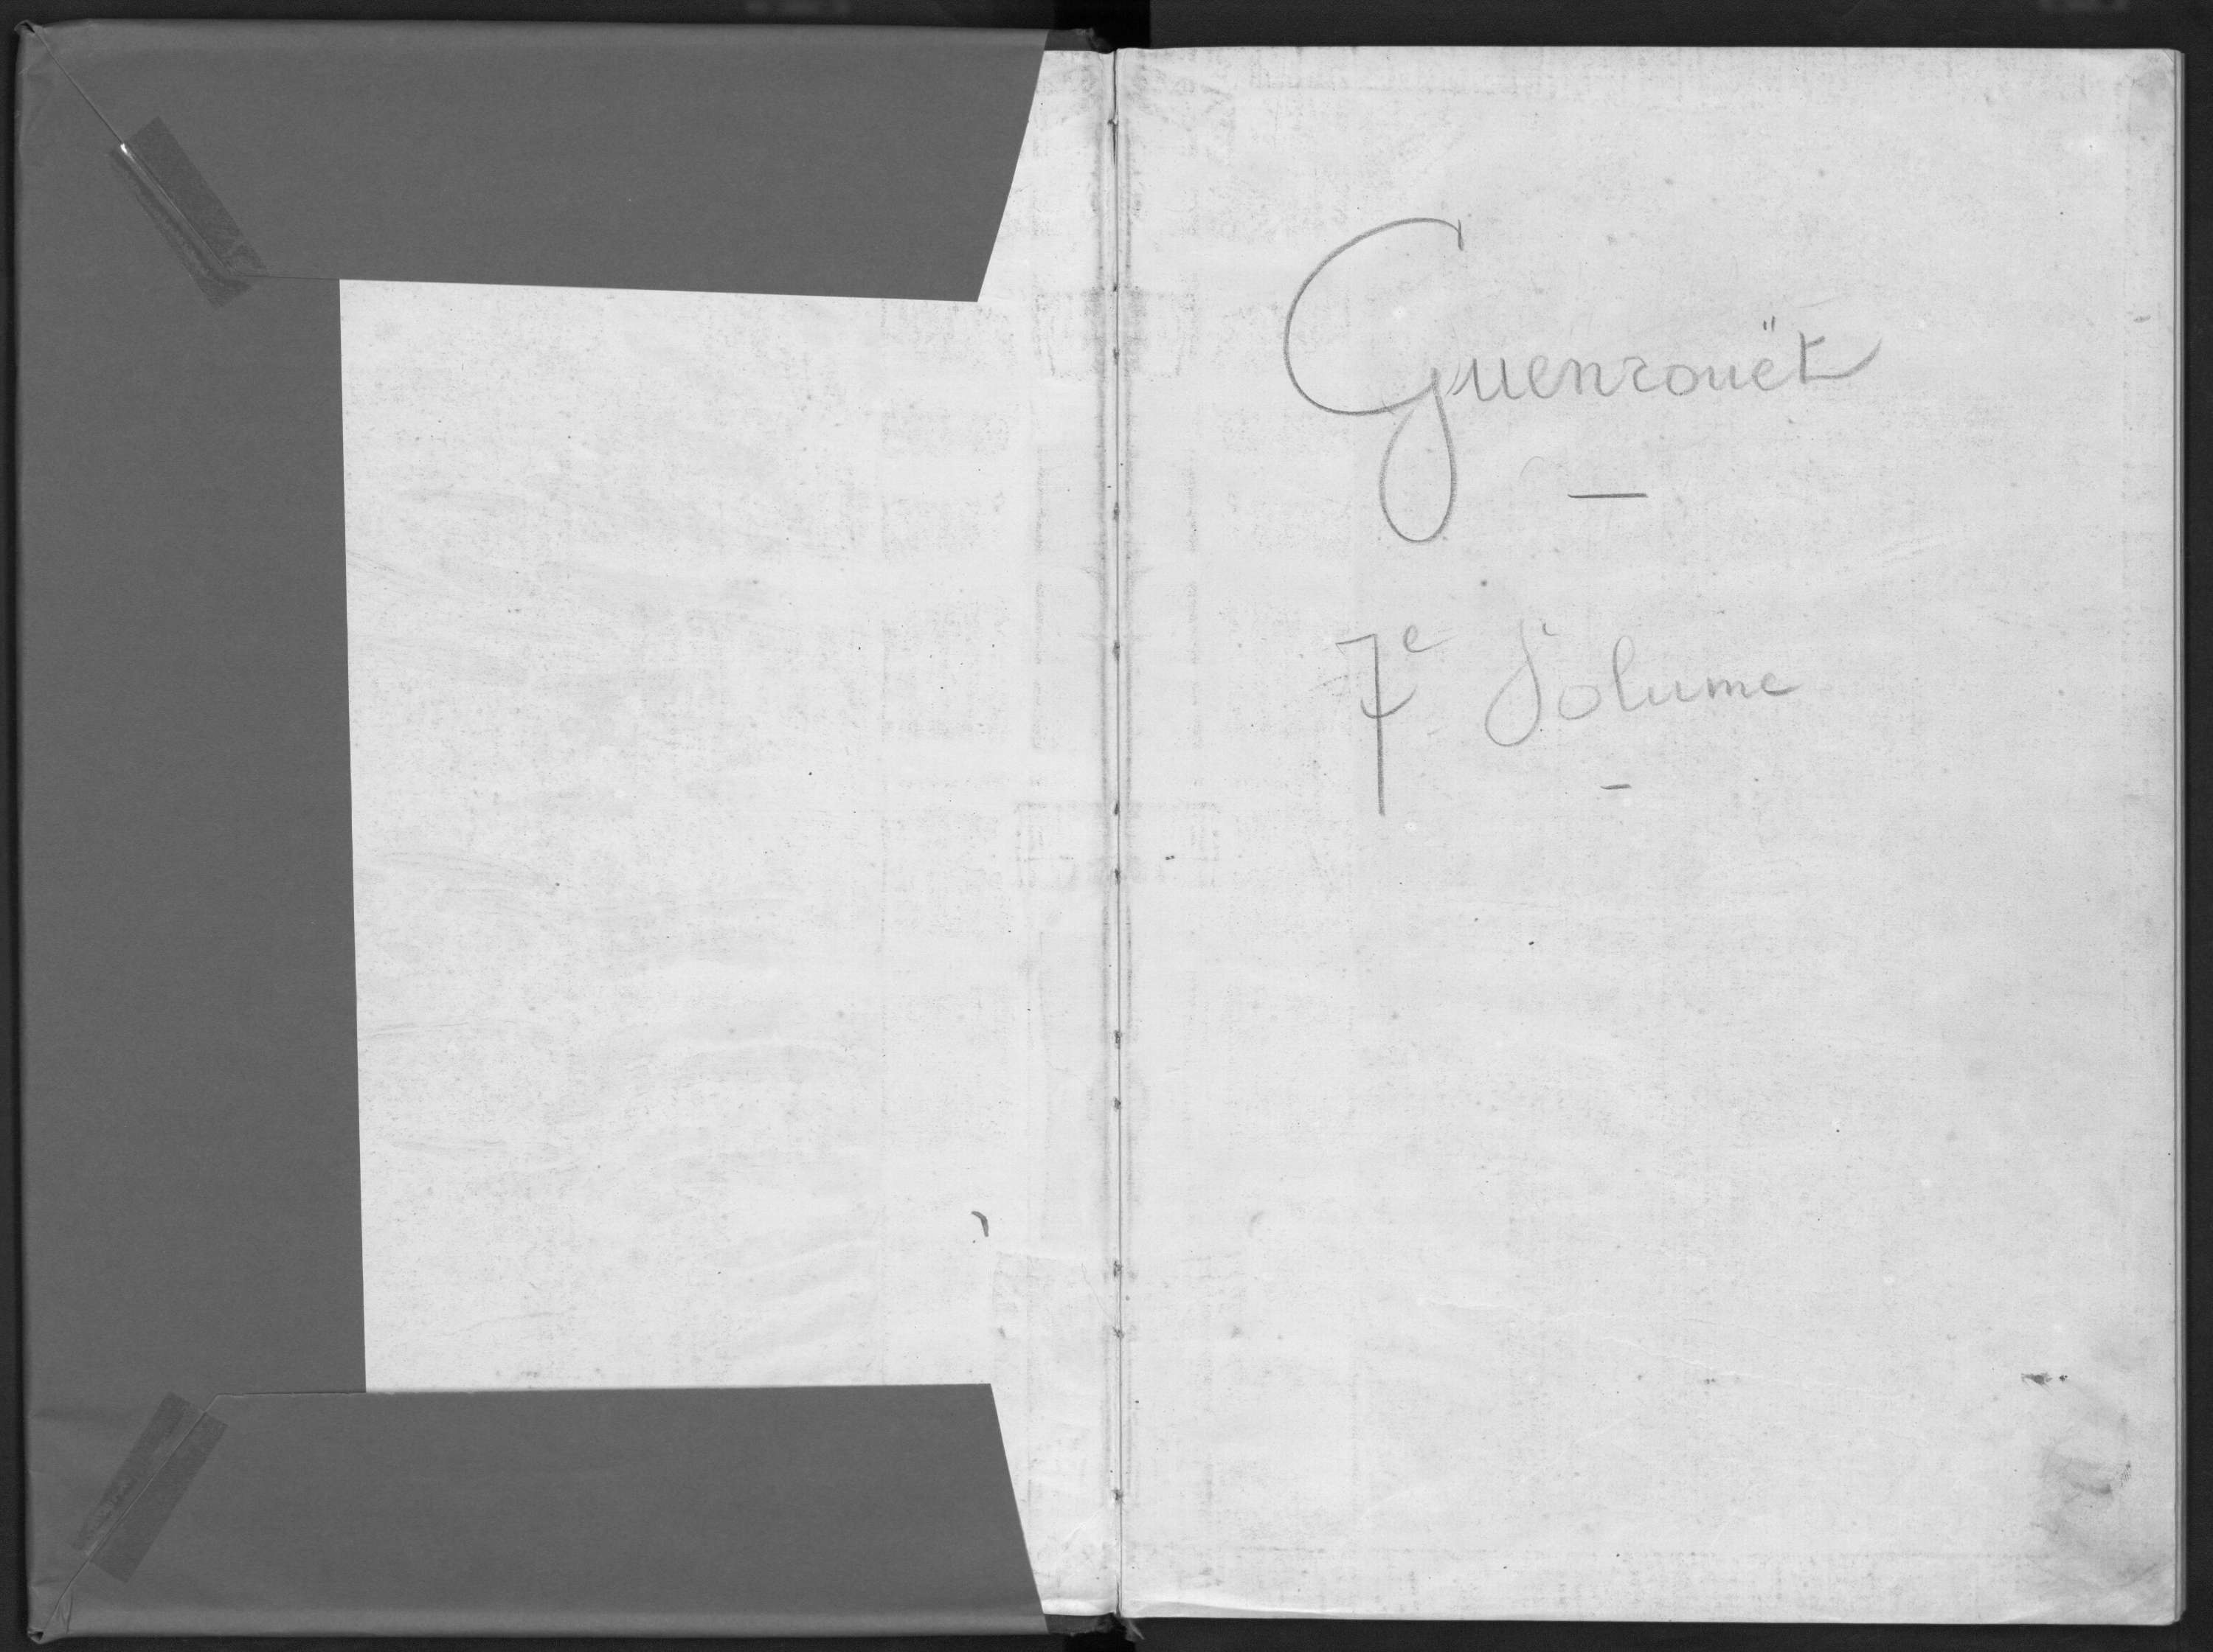 Guenrouët
—
7e Volume
-